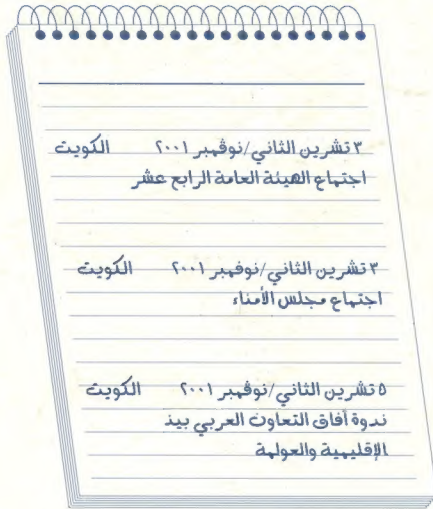 ٣ تشرين الثاني/نوڤمبر ٢٠٠١ الكويت
اجتماع الهيئة العامة الرابع عشر
٣ تشرين الثاني/نوفمبر ٢٠٠١ الكويت
اجتماع مجلس الأمناء
٥ تشرين الثاني/نوفمبر ٢٠٠١ الكويت
ندوة آفاق التعاون العربي بين
الإقليمية والعولمة